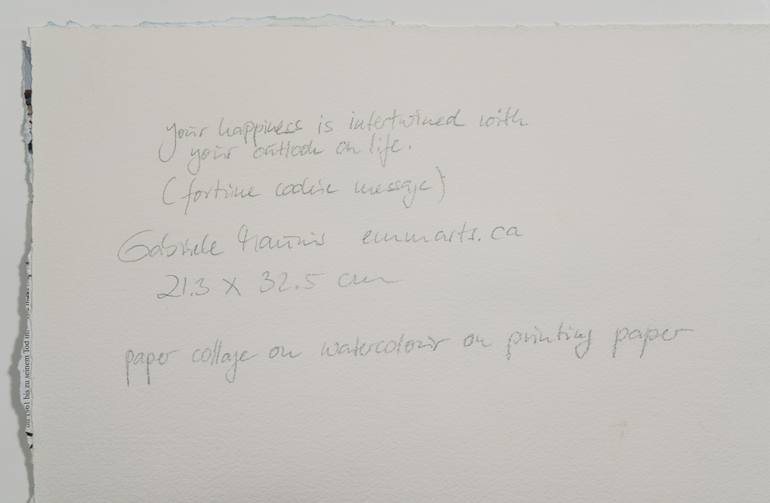 your happiness is intertwined with
your outlook on life.
(fortune cookie message)
Gabriele emmarts.ca
21.3 x 32.5 cm
paper collage on watercolour on printing paper
bis zu seinem Tod